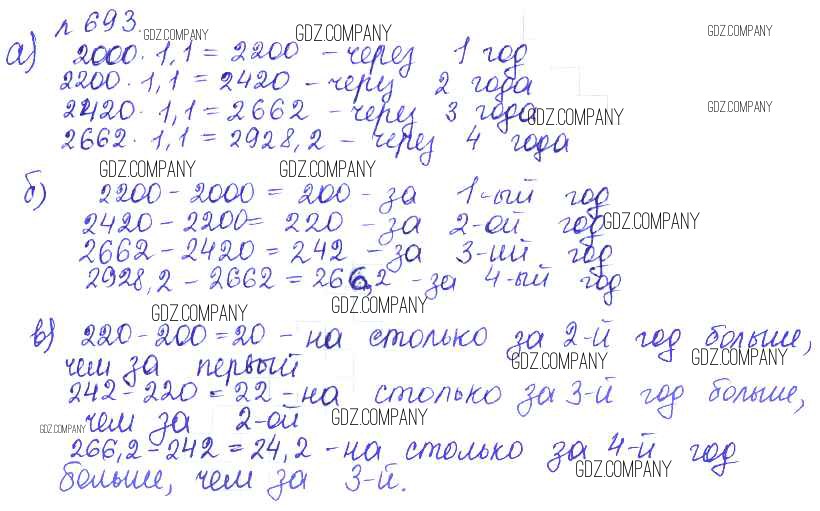 № 693.
GDZ.COMPANY GDZ.COMPANY GDZ.COMPANY
а) 2000 · 1,1 = 2200 – через 1 год
2200 · 1,1 = 2420 – через 2 года
2420 · 1,1 = 2662 – через 3 года
GDZ.COMPANY GDZ.COMPANY
2662 · 1,1 = 2928,2 – через 4 года
GDZ.COMPANY GDZ.COMPANY
б) 2200 – 2000 = 200 – за 1-ый год
2420 – 2200 = 220 – за 2-ой год
GDZ.COMPANY
2662 – 2420 = 242 – за 3-ий год
2928,2 – 2662 = 266,2 – за 4-ый год
GDZ.COMPANY GDZ.COMPANY
в) 220 – 200 = 20 – на столько за 2-й год больше,
чем за первый
GDZ.COMPANY GDZ.COMPANY
242 – 220 = 22 – на столько за 3-й год больше,
чем за 2-ой
GDZ.COMPANY GDZ.COMPANY
266,2 – 242 = 24,2 – на столько за 4-й год
GDZ.COMPANY
больше, чем за 3-й.